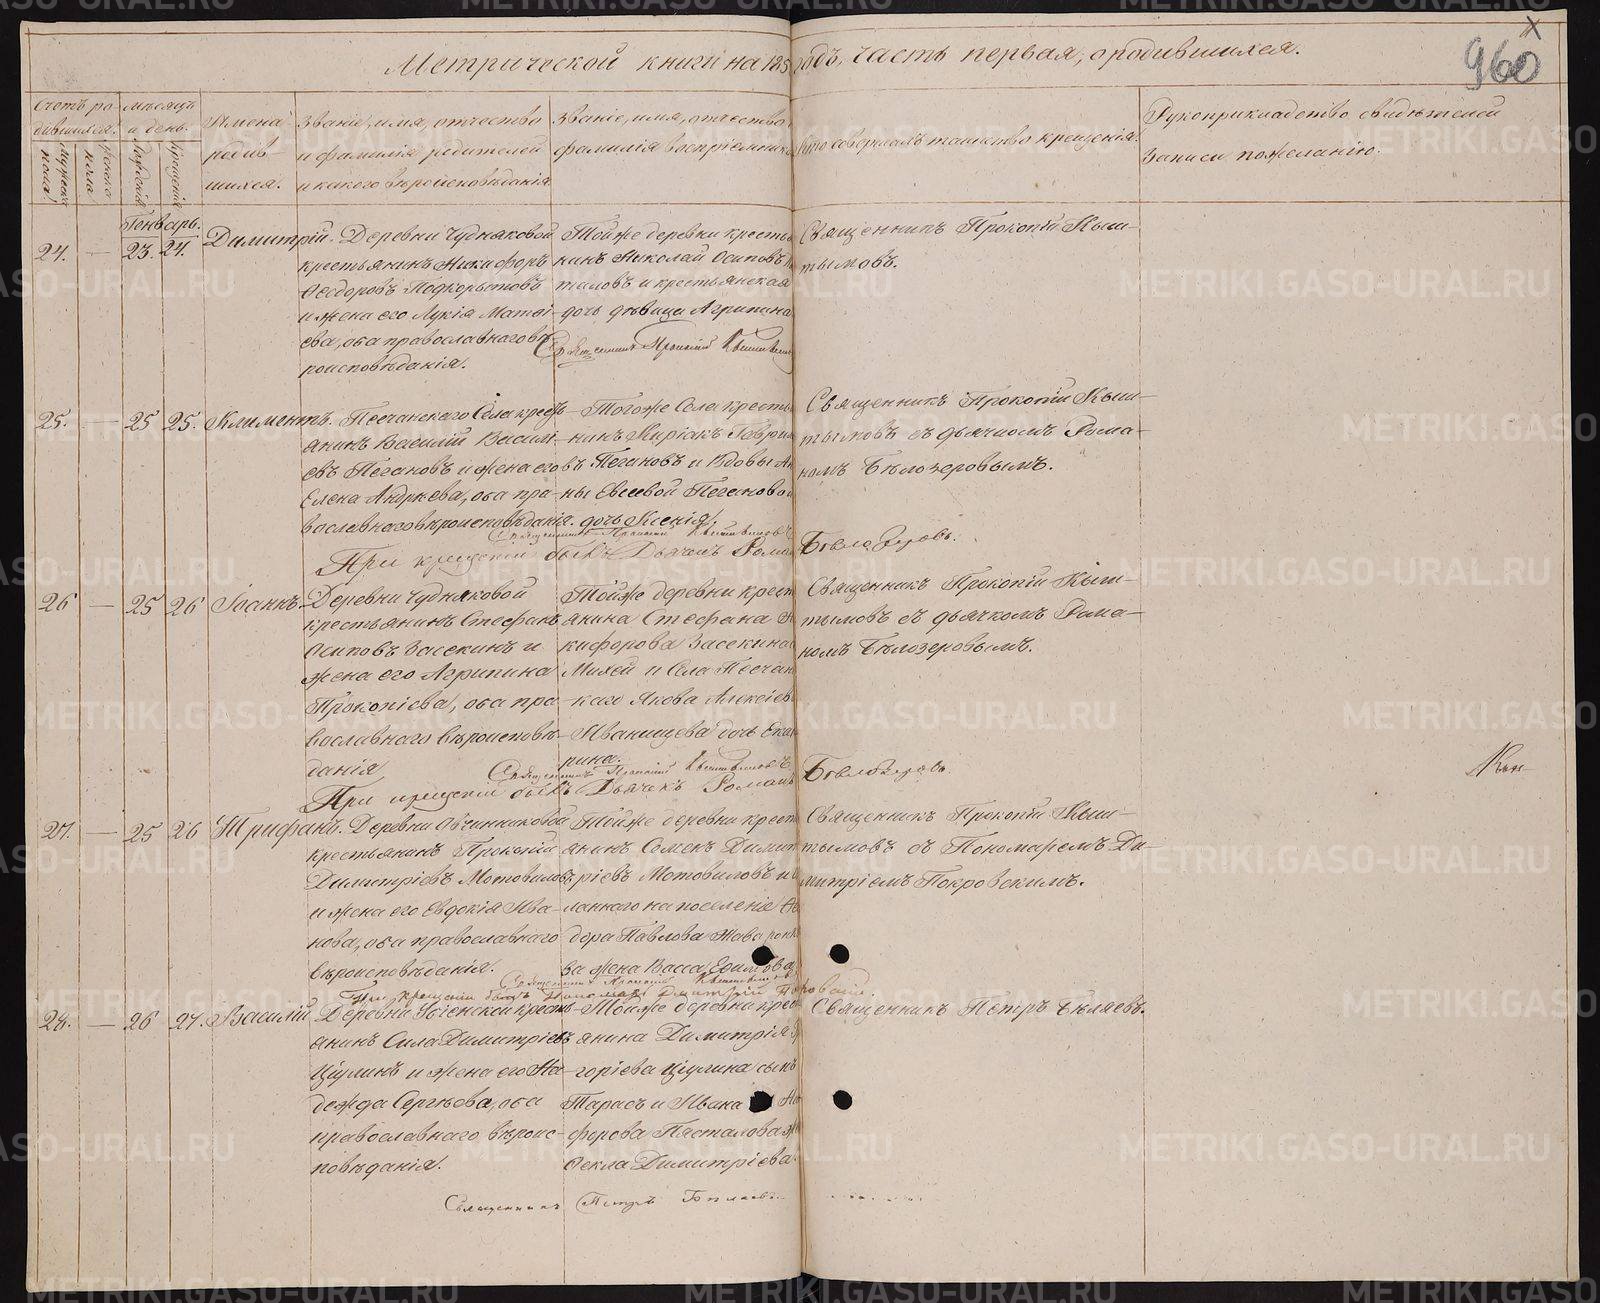 960
Метрической книги на 185 годъ, часть первая, о родившихся.
Счетъ ро-
дившихся.
мужеска
пола
женска
пола
мѣсяцъ
и день.
рожденія
крещенія
Имена
родив-
шихся.
Званіе, имя, отчество
и фамилія родителей
и какого вѣроисповѣданія
Званіе, имя, отчество
фамилія воспріемник
Кто совершалъ таинство крещенія.
Рукоприкладство свидѣтелей
записи по желанію.
Генварь.
24. — 23. 24. Димитрій.
Деревни Чудняковой
крестьянинъ Никифоръ
Ѳеодоровъ Подкорытовъ
и жена его Лукія Матѳі-
ева, оба православнаго вѣ-
роисповѣданія.
Тойже деревни крестья
нинъ Николай Осиповъ
тиловъ и крестьянская
дочь дѣвица Агрипина
Священникъ Прокопій Кыштымов
Священникъ Прокопій Кыш-
тымовъ.
25. — 25 25. Климентъ.
Песчанскаго Села кресть-
янинъ Василій Василь-
евъ Пегановъ и жена его
Елена Андрѣева, оба пра-
вославнаго вѣроисповѣданія.
Тогоже Села кресть
нинъ Киріакъ Гаврил
въ Пегановъ и Вдовы Ан
ны Евсевой Пегановой
дочь Ксенія.
Священникъ Прокопій Кыштымовъ
При крещеніи былъ Дьячекъ Роман Бѣлозеровъ.
Священникъ Прокопій Кыш-
тымовъ съ дьячкомъ Рома-
номъ Бѣлозеровымъ.
26 — 25 26 Іоаннъ.
Деревни Чудняковой
крестьянинъ Стефанъ
Осиповъ Засекинъ и
жена его Агрипина
Прокопіева, оба пра-
вославнаго вѣроисповѣ-
данія,
Тойже деревни крест
янина Стефана Ни
кифорова Засекина
Михей и Села Песчан
каго Якова Алексіев
Иванищева дочь Екате
рина.
Священникъ Прокопій Кыштымовъ
При крещеніи былъ Дьячекъ Романъ Бѣлозеровъ
Священникъ Прокопій Кыш-
тымовъ съ дьячкомъ Рома-
номъ Бѣлозеровымъ.
27. — 25 26 Трифанъ.
Деревни Овчинниковой
крестьянинъ Прокопій
Димитріевъ Мотовиловъ
и жена его Евдокія Ива-
нова, оба православнаго
вѣроисповѣданія.
Тойже деревни крест
янинъ Семенъ Димит
ріевъ Мотовиловъ и
ланнаго на поселеніе Ѳе
дора Павлова Жаваронко
ва жена Васса Ефимова
Священникъ Прокопій Кыштымовъ
При крещеніи былъ Пономарь Димитрій Покровскій.
Священникъ Прокопій Кыш-
тымовъ съ Пономаремъ Ди-
митріемъ Покровскимъ.
28. — 26 27. Василій
Деревни кресть-
янинъ Сила Димитріевъ
Цѣулинъ и жена его На-
дежда Сергѣева, оба
православнаго вѣроис-
повѣданія.
Тойже деревни крес
янина Димитрія
горіева Цѣулина сынъ
Тарасъ и Ивана
форова Пасталова
Ѳекла Димитріева.
Священникъ Петръ Бѣляевъ
Священникъ Петръ Бѣляевъ.